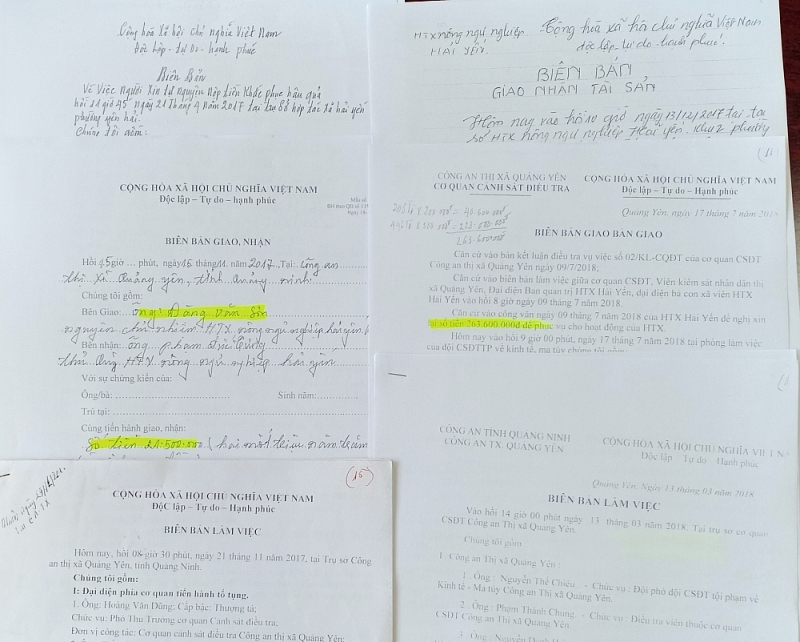 Cộng hòa Xã hội chủ nghĩa Việt Nam
Độc lập - tự do - hạnh phúc
Biên Bản
Về Việc Người Xin tự nguyện nộp tiền khắc phục hậu quả
hồi 14 giờ 45 ngày 21 tháng 4 năm 2017 tại trụ sở hợp tác xã hải yến
phường yên hải.
Chúng tôi gồm:
HTX nông ngư nghiệp
HẢI YẾN.
Cộng hòa xã hội chủ nghĩa Việt Nam
độc lập tự do hạnh phúc.
BIÊN BẢN
GIAO NHẬN TÀI SẢN
Hôm nay vào hồi 10 giờ ngày 13/12/2017 tại trụ
sở HTX nông ngư nghiệp Hải yến. khu 2 phường
CỘNG HÒA XÃ HỘI CHỦ NGHĨA VIỆT NAM
Độc lập – Tự do – hạnh phúc
BIÊN BẢN GIAO, NHẬN
Hồi 15 giờ ... phút, ngày 15 tháng 11 năm 2017 Tại: Công an
thị xã Quảng yên, tỉnh quảng ninh
Chúng tôi gồm:
Bên Giao: Ông: Đặng Văn Sơn
nguyên chủ nhiệm HTX nông ngư nghiệp hải yến
Bên nhận: ông phạm
thủ quỹ HTX nông ngư nghiệp hải yến
Với sự chứng kiến của:
Ông/bà: Sinh năm:
Trú tại:
Cùng tiến hành giao, nhận:
Số tiền 21.500.000 (hai mốt triệu năm trăm
(11
CÔNG AN THỊ XÃ QUẢNG YÊN
CƠ QUAN CẢNH SÁT ĐIỀU TRA
CỘNG HÒA XÃ HỘI CHỦ NGHĨA VIỆT NAM
Độc lập - Tự do - Hạnh phúc
Quảng Yên, ngày 17 tháng 7 năm 2018
263.600.000
BIÊN BẢN GIAO BÀN GIAO
Căn cứ vào bản kết luận điều tra vụ việc số 02/KL-CQĐT của cơ quan CSĐT
Công an thị xã Quảng Yên ngày 09/7/2018;
Căn cứ vào biên bản làm việc giữa cơ quan CSĐT, Viện kiểm sát nhân dân thị
xã Quảng Yên, Đại diện Ban quản trị HTX Hải Yến, đại diện bà con xã viên HTX
Hải Yến vào hồi 8 giờ ngày 09 tháng 7 năm 2018.
Căn cứ vào công văn ngày 09 tháng 7 năm 2018 của HTX Hải Yến đề nghị xin
lại số tiền 263.600.000đ để phục vụ cho hoạt động của HTX.
Hôm nay vào hồi 9 giờ 00 phút, ngày 17 tháng 7 năm 2018 tại phòng làm việc
của đội CSĐTTP về kinh tế, ma túy chúng tôi gồm:
(15)
CỘNG HÒA XÃ HỘI CHỦ NGHĨA VIỆT NAM
ĐộC lập – Tự do – Hạnh phúc
BIÊN BẢN LÀM VIỆC
Hôm nay, hồi 08 giờ 30 phút, ngày 21 tháng 11 năm 2017, tại Trụ sở Công
an thị xã Quảng Yên, tỉnh Quảng Ninh.
Chúng tôi gồm:
I: Đại diện phía cơ quan tiến hành tố tụng.
1. Ông: Hoàng Văn Dũng; Cấp bậc: Thượng tá;
Chức vụ: Phó Thủ Trưởng cơ quan Cảnh sát điều tra;
Đơn vị công tác: Cơ quan cảnh sát điều tra Công an thị xã Quảng Yên;
CÔNG AN TỈNH QUẢNG NINH
CÔNG AN TX. QUẢNG YÊN
CỘNG HÒA XÃ HỘI CHỦ NGHĨA VIỆT N
Độc lập Tự do Hạnh phúc
Quảng Yên, Ngày 13 tháng 03 năm 2018
BIÊN BẢN LÀM VIỆC
Vào hồi 14 giờ 00 phút ngày 13 tháng 03 năm 2018. Tại trụ sở cơ quan
CSĐT Công an Thị xã Quảng Yên.
Chúng tôi gồm
1. Công an Thị xã Quảng Yên :
1. Ông : Nguyễn Thế Chiêu - Chức vụ : Đội phó đội CSĐT tội phạm về
Kinh tế - Ma túy Công an Thị xã Quảng Yên.
2. Ông : Phạm Thành Chung - Chức vụ : Điều tra viên thuộc cơ quan
CSĐT Công an Thị xã Quảng Yên.
3. Ông : Nguyễn